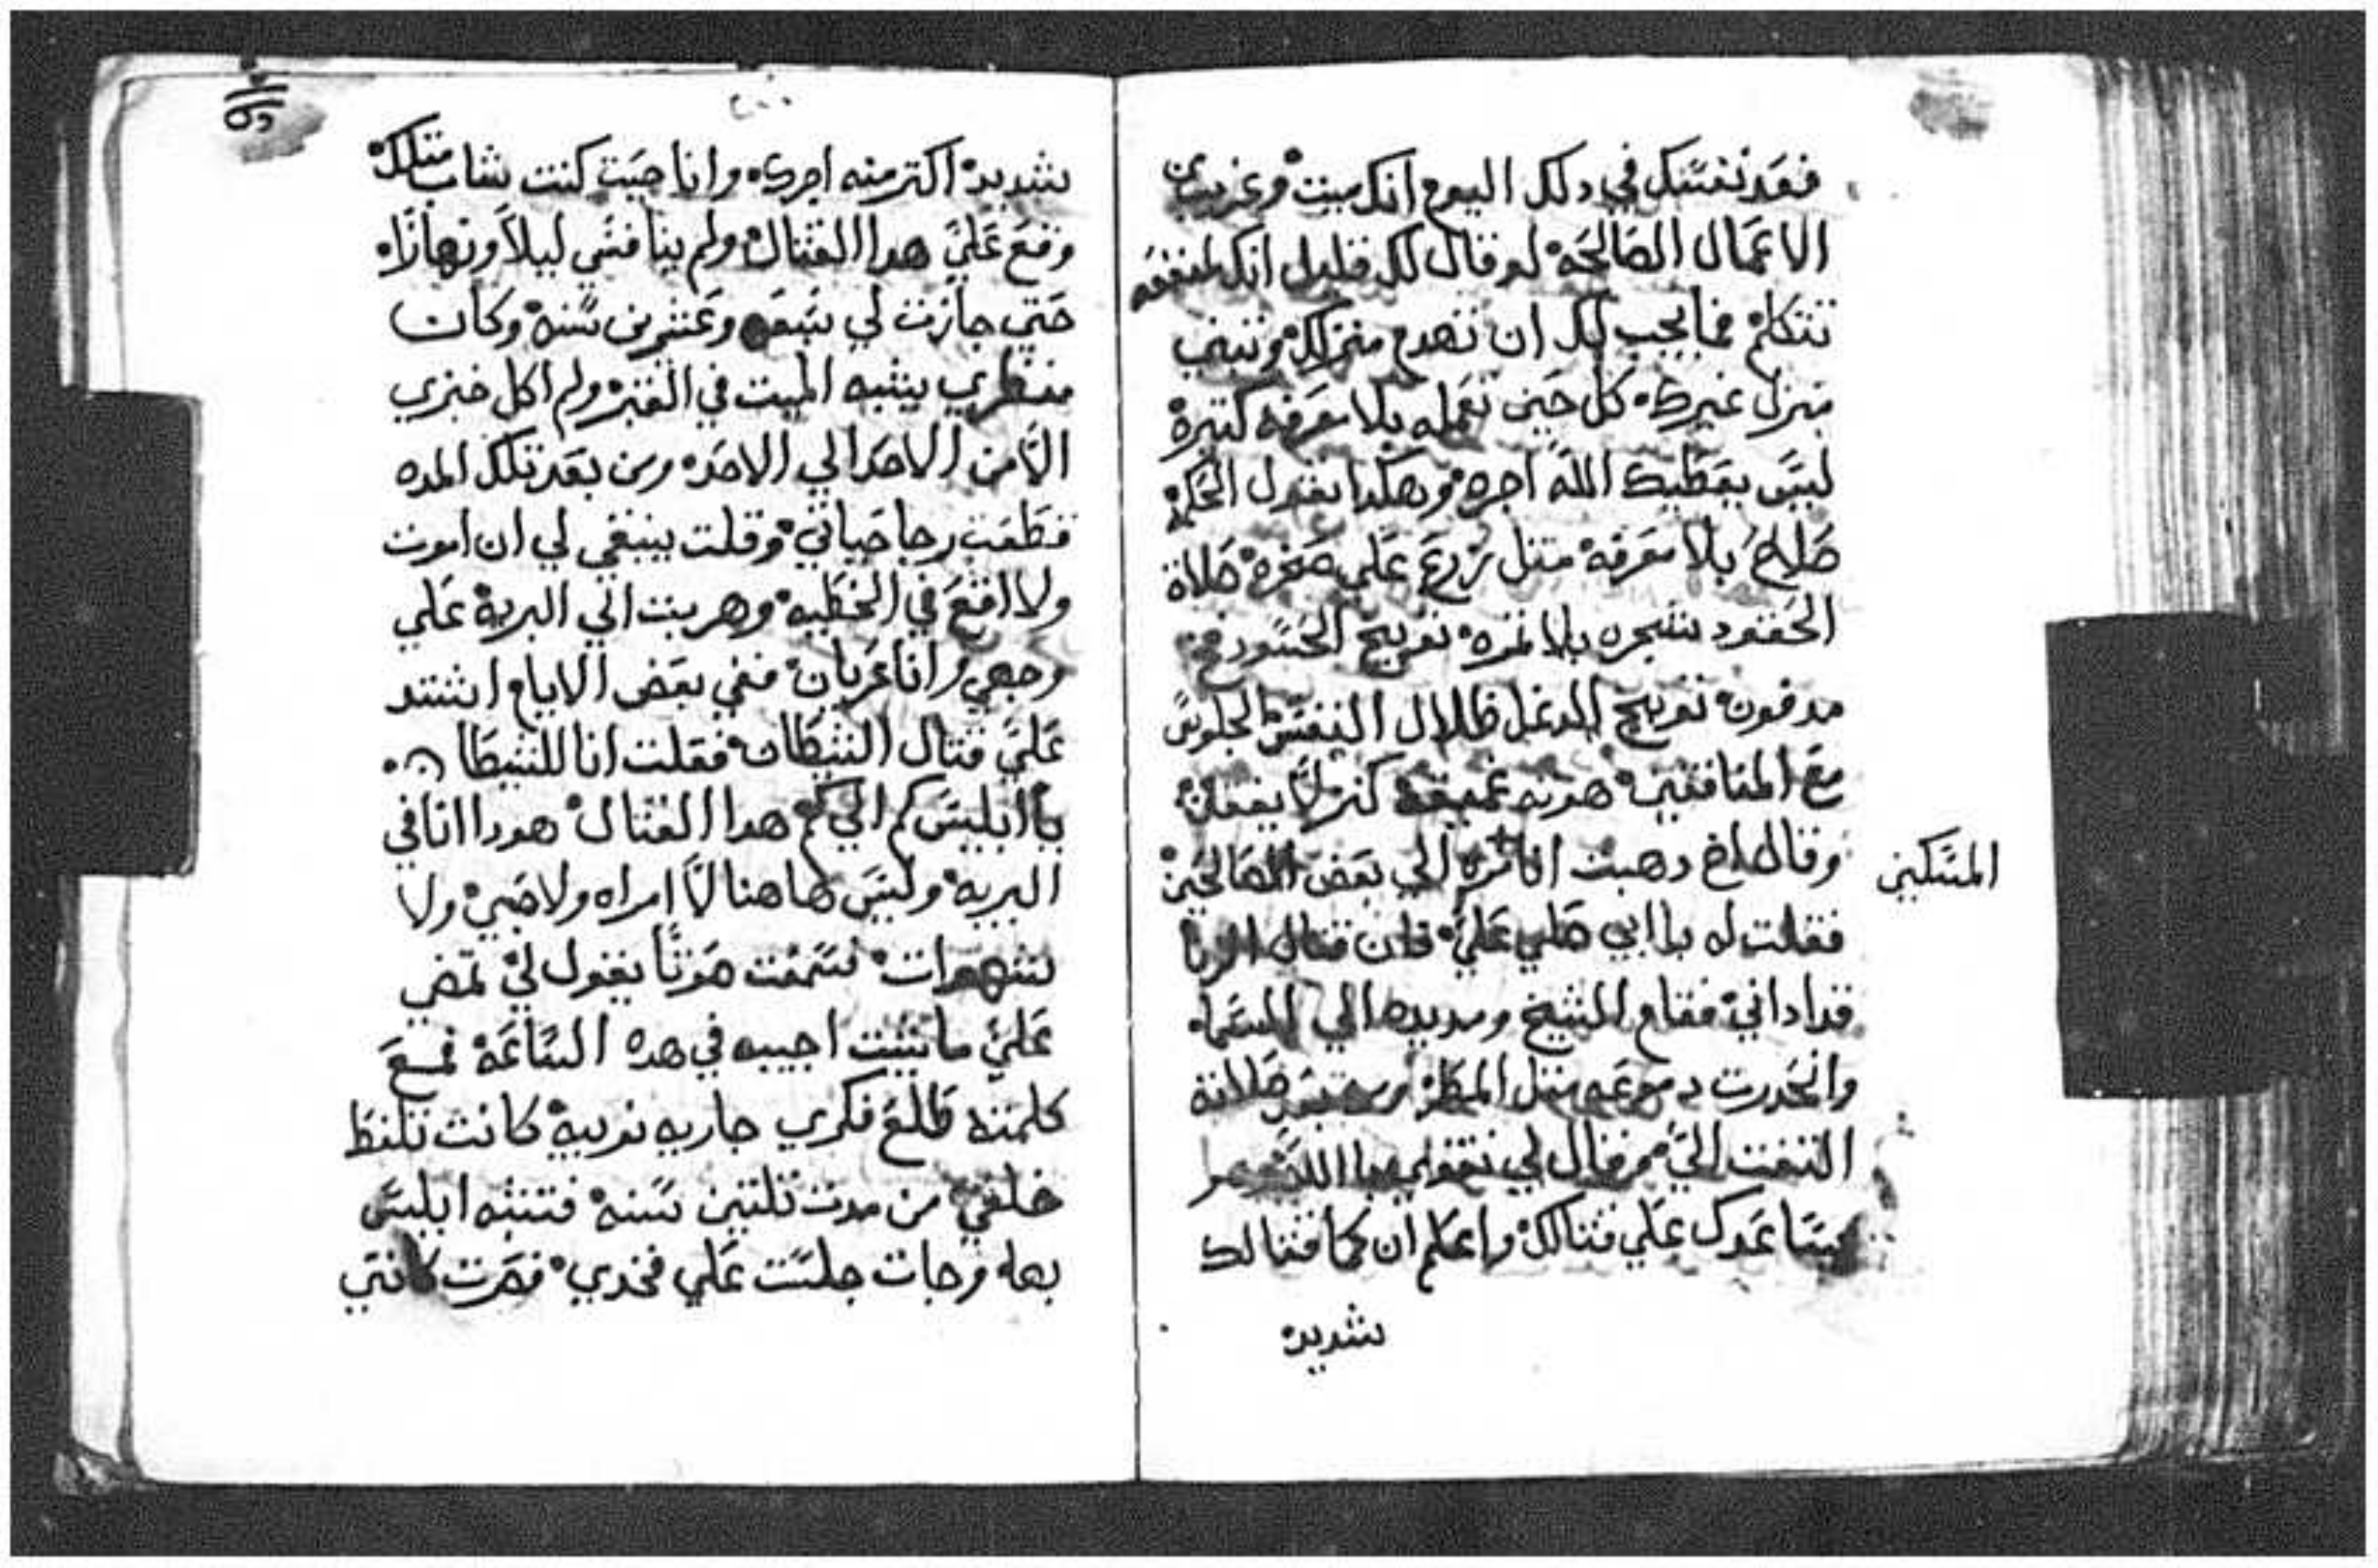 فعد نفسك في دلك اليوم انك ميت وغريب من
الاعمال الصالحه لو قال لك قليل انك لمنفعه
تتكلم فما يجب لك ان تهدم منزلك وتبني
منزل غيرك كل حين تعمله بلا معرفه كتيرة
ليس يعطيك الله اجره وهكدا يقول الحكيم
صلاح بلا معرفه متل زرع علي صخره صلاة
الحقود شجره بلا تمره تفريح الحسود
مدفون تفريح الدغل ظلال النفس الجلوس
مع المنافقين هوته عميقه كنز لا يفعل
وقال دهبت انا مره الي بعض الصالحين
المسكين
فقلت له يا ابي صلي علي فان قتال الزنا
قد اداني فقام الشيخ ومد يده الي السما
وانحدرت دموعه متل المطر ومن بعد صلاته
التفت الي تم قال لي تقوي يا
يساعدك علي قتالك واعلم ان كما قتالك
شديد
شديد اكتر منه اجرك وانا حيت كنت شاب متلك
وقع علي هدا القتال ولم ينافقني ليلا ونهارا
حتي جازت لي تسعه وعشرين سنه وكان
منظري يشبه الميت في القبر ولم اكل خبزي
الا من الاحد الي الاحد ومن بعد تلك المده
قطعت رجا حياتي وقلت ينبغي لي ان اموت
ولا اقع في الخطيه وهربت الي البرية علي
وجهي وانا عريان ففي بعض الايام اشتد
علي قتال الشيطان فقلت انا للشيطان
يا ابليس كم الي كم هدا القتال هودا انا في
البريه وليس هاهنا لا امراه ولا صبي ولا
شهوات فسمعت صوتا يقول لي تمضي
علي ما شيت اجيبه في هده الساعة فمع
كلمته طلع فكري جاريه نوبية كانت تلقط
خلفي من مدت تلتين سنه فتشبه ابليس
بها وجات جلست علي فخدي فصرت كانني